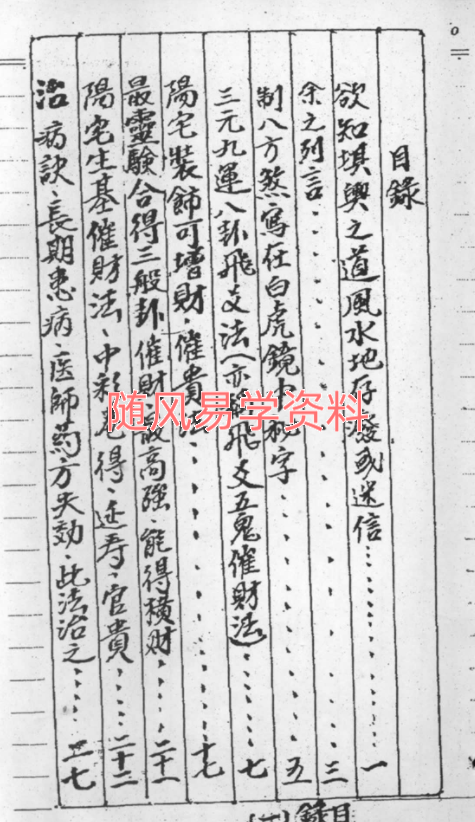 目錄
欲知堪輿之道風水地存發或迷信……一
余之列言……三
制八方煞寫在白虎鏡中秘字……五
三元九運八卦飛爻法（亦飛爻五鬼催財法）……七
陽宅裝飾可增財、催貴法……十七
最靈驗合得三般卦催財最高強、能得橫財……二十一
陽宅生基催財法、中彩、得、延寿、官貴……二十二
治病訣、長期患病、医師药方失効、此法治之……二七
随风易学资料
目錄